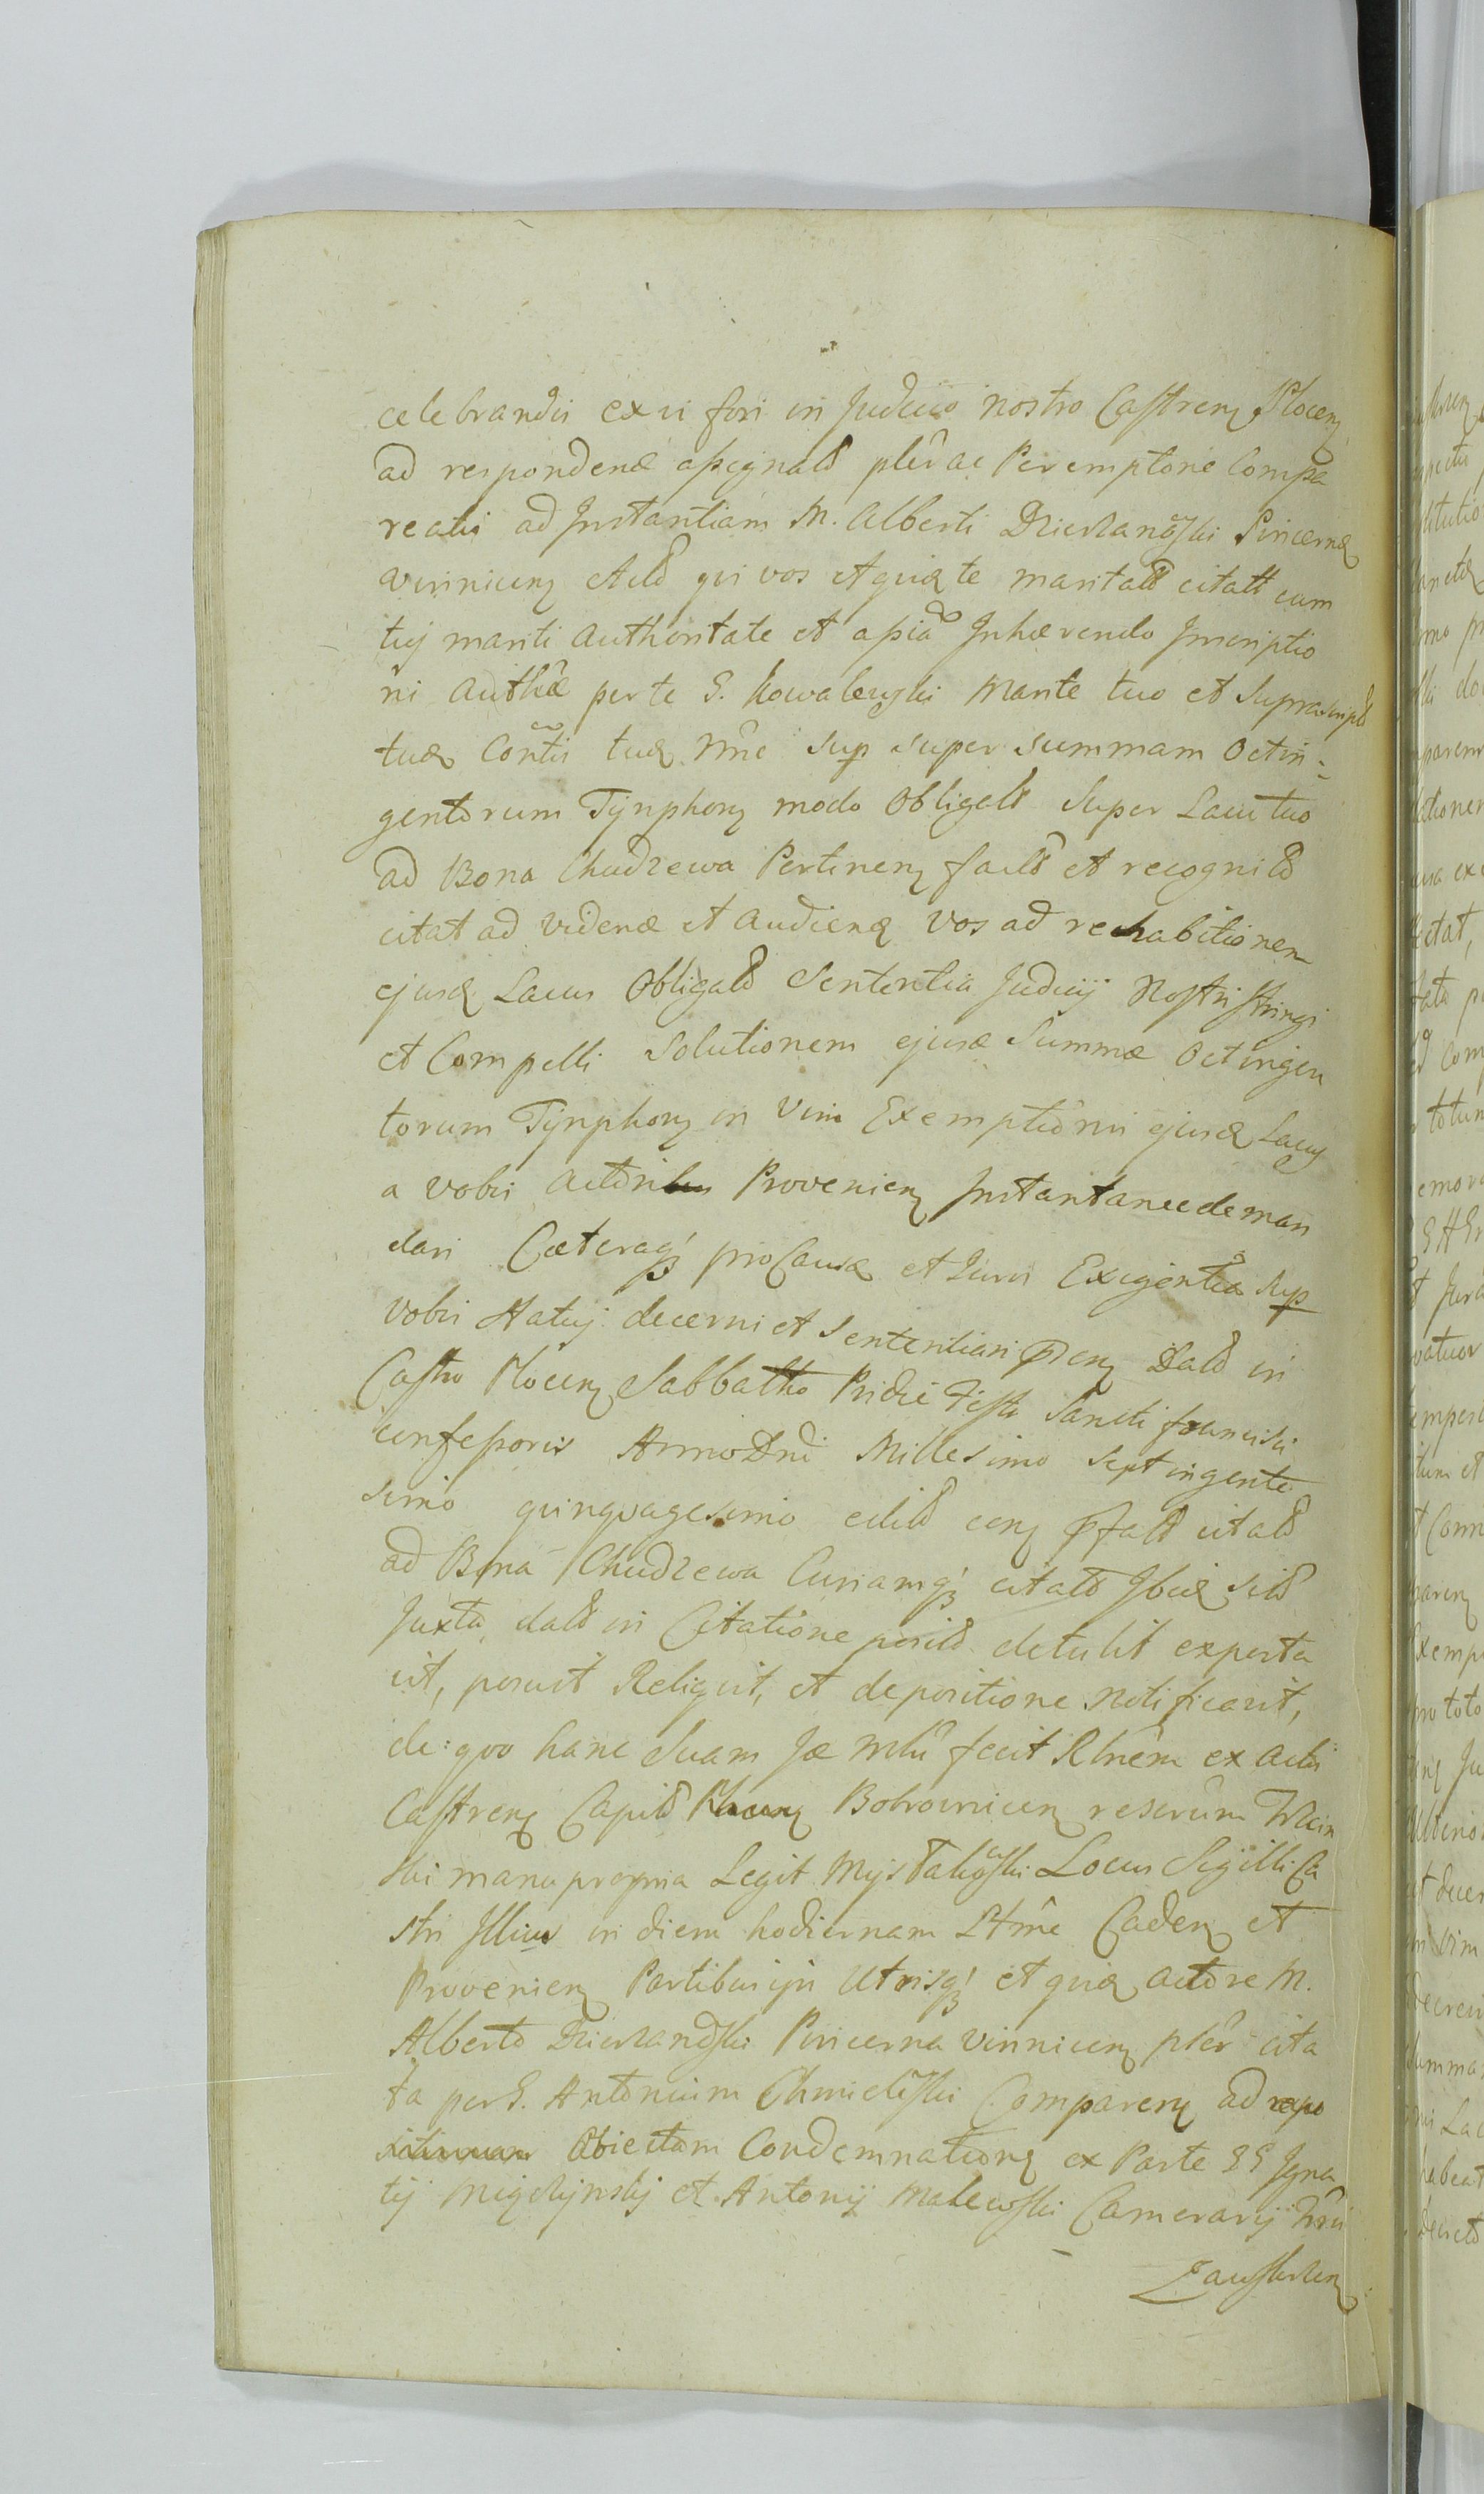 celebrandis ex vi fori in Judicio nostro Castren Plocen
ad respondend assignatt plêr ac Peremptorie Compa
reatis ad Jnstantiam M. Alberti Dzierzanoski Pincernæ
vinnicen Actt qui vos et quid te maritatt citatt cum
tuj mariti Authoritate et assia Jnhærendo Jnscriptio
ni Authæ per te G. Kowalewski Marite tuo et Suprascript
tuæ Contis tuæ nne sup super summam Octin=
gentorum Tÿnphon modo Obligatt Super Lacu tuo
ad Bona Chudzewa Pertinen factt et recognitt
citat ad vidend et audiend vos ad rehabitionem
ejusd Lacus Obligatt Sententia Judicij Nostri stringi
et Compelli Solutionem ejusd Summæ Octingen
torum Tÿnphon in vim Exemptionis ejusd Lacus
a vobis Actoribus Provenien Jnstantanee deman
dari Cæteraq; pro Causæ et Juris Exigentia Sup
vobis Statuj decerni et Sententiari pren Datt in
Castro Plocen Sabbatho Pridie Festi Sancti francisci
confessoris Anno Dni Millesimo Septingente
simo quinquagesimo citatt
ad Bona Chudzewa Curiamq; citatt Jbid sitt
Juxta datt in Citatione positt detulit exporta
vit, posuit Reliquit, et depositione notificavit,
de: quo hanc Suam Jd Mlri fecit Rlnêm ex Actis
Castren Capitt Bobrovnicen
manu propria Legit Locus Sigilli Ca
stri Jllius in diem hodiernam Ltme Caden et
Provenien Partibus ijs Utrisq; et quid Actore M.
Alberto Dzierzanoski Pincerna vinnicen plêr cita
ta per G. Antonium Chmieleski Comparen ad repo
Obiectam Condemnation ex Parte GG Jgna
tij et Antonij Malewski Camerarij
Zawskrzen